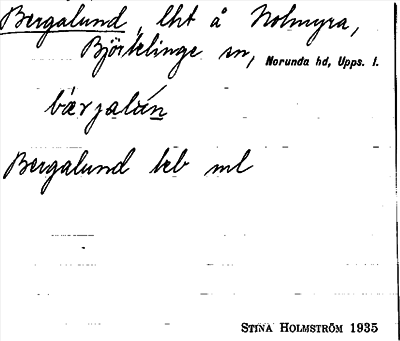 Bergalund, lht å Nolmyra,
Björklinge sn, Norunda hd, Upps. l.
bærjalún
Bergalund leb ml
STINA HOLMSTRÖM 1935